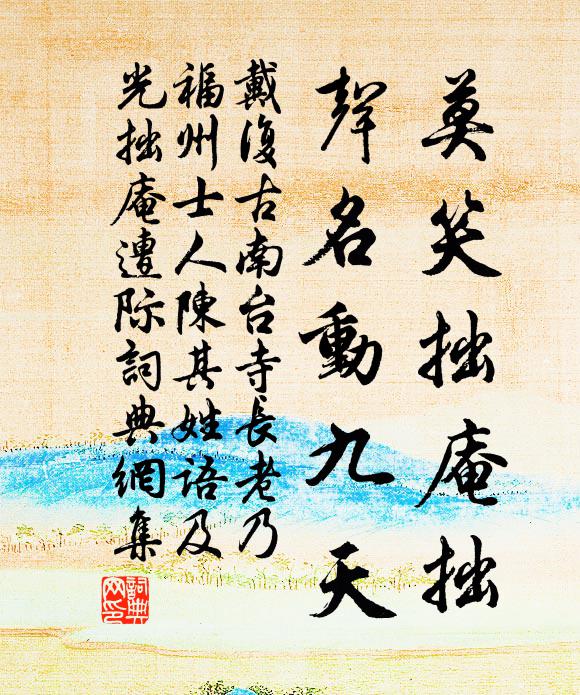 莫笑拙庵拙
聲名動九天
戴復古南台寺長老乃
福州士人陳其姓語及
光拙庵遭際詞典網集
詞典
网印